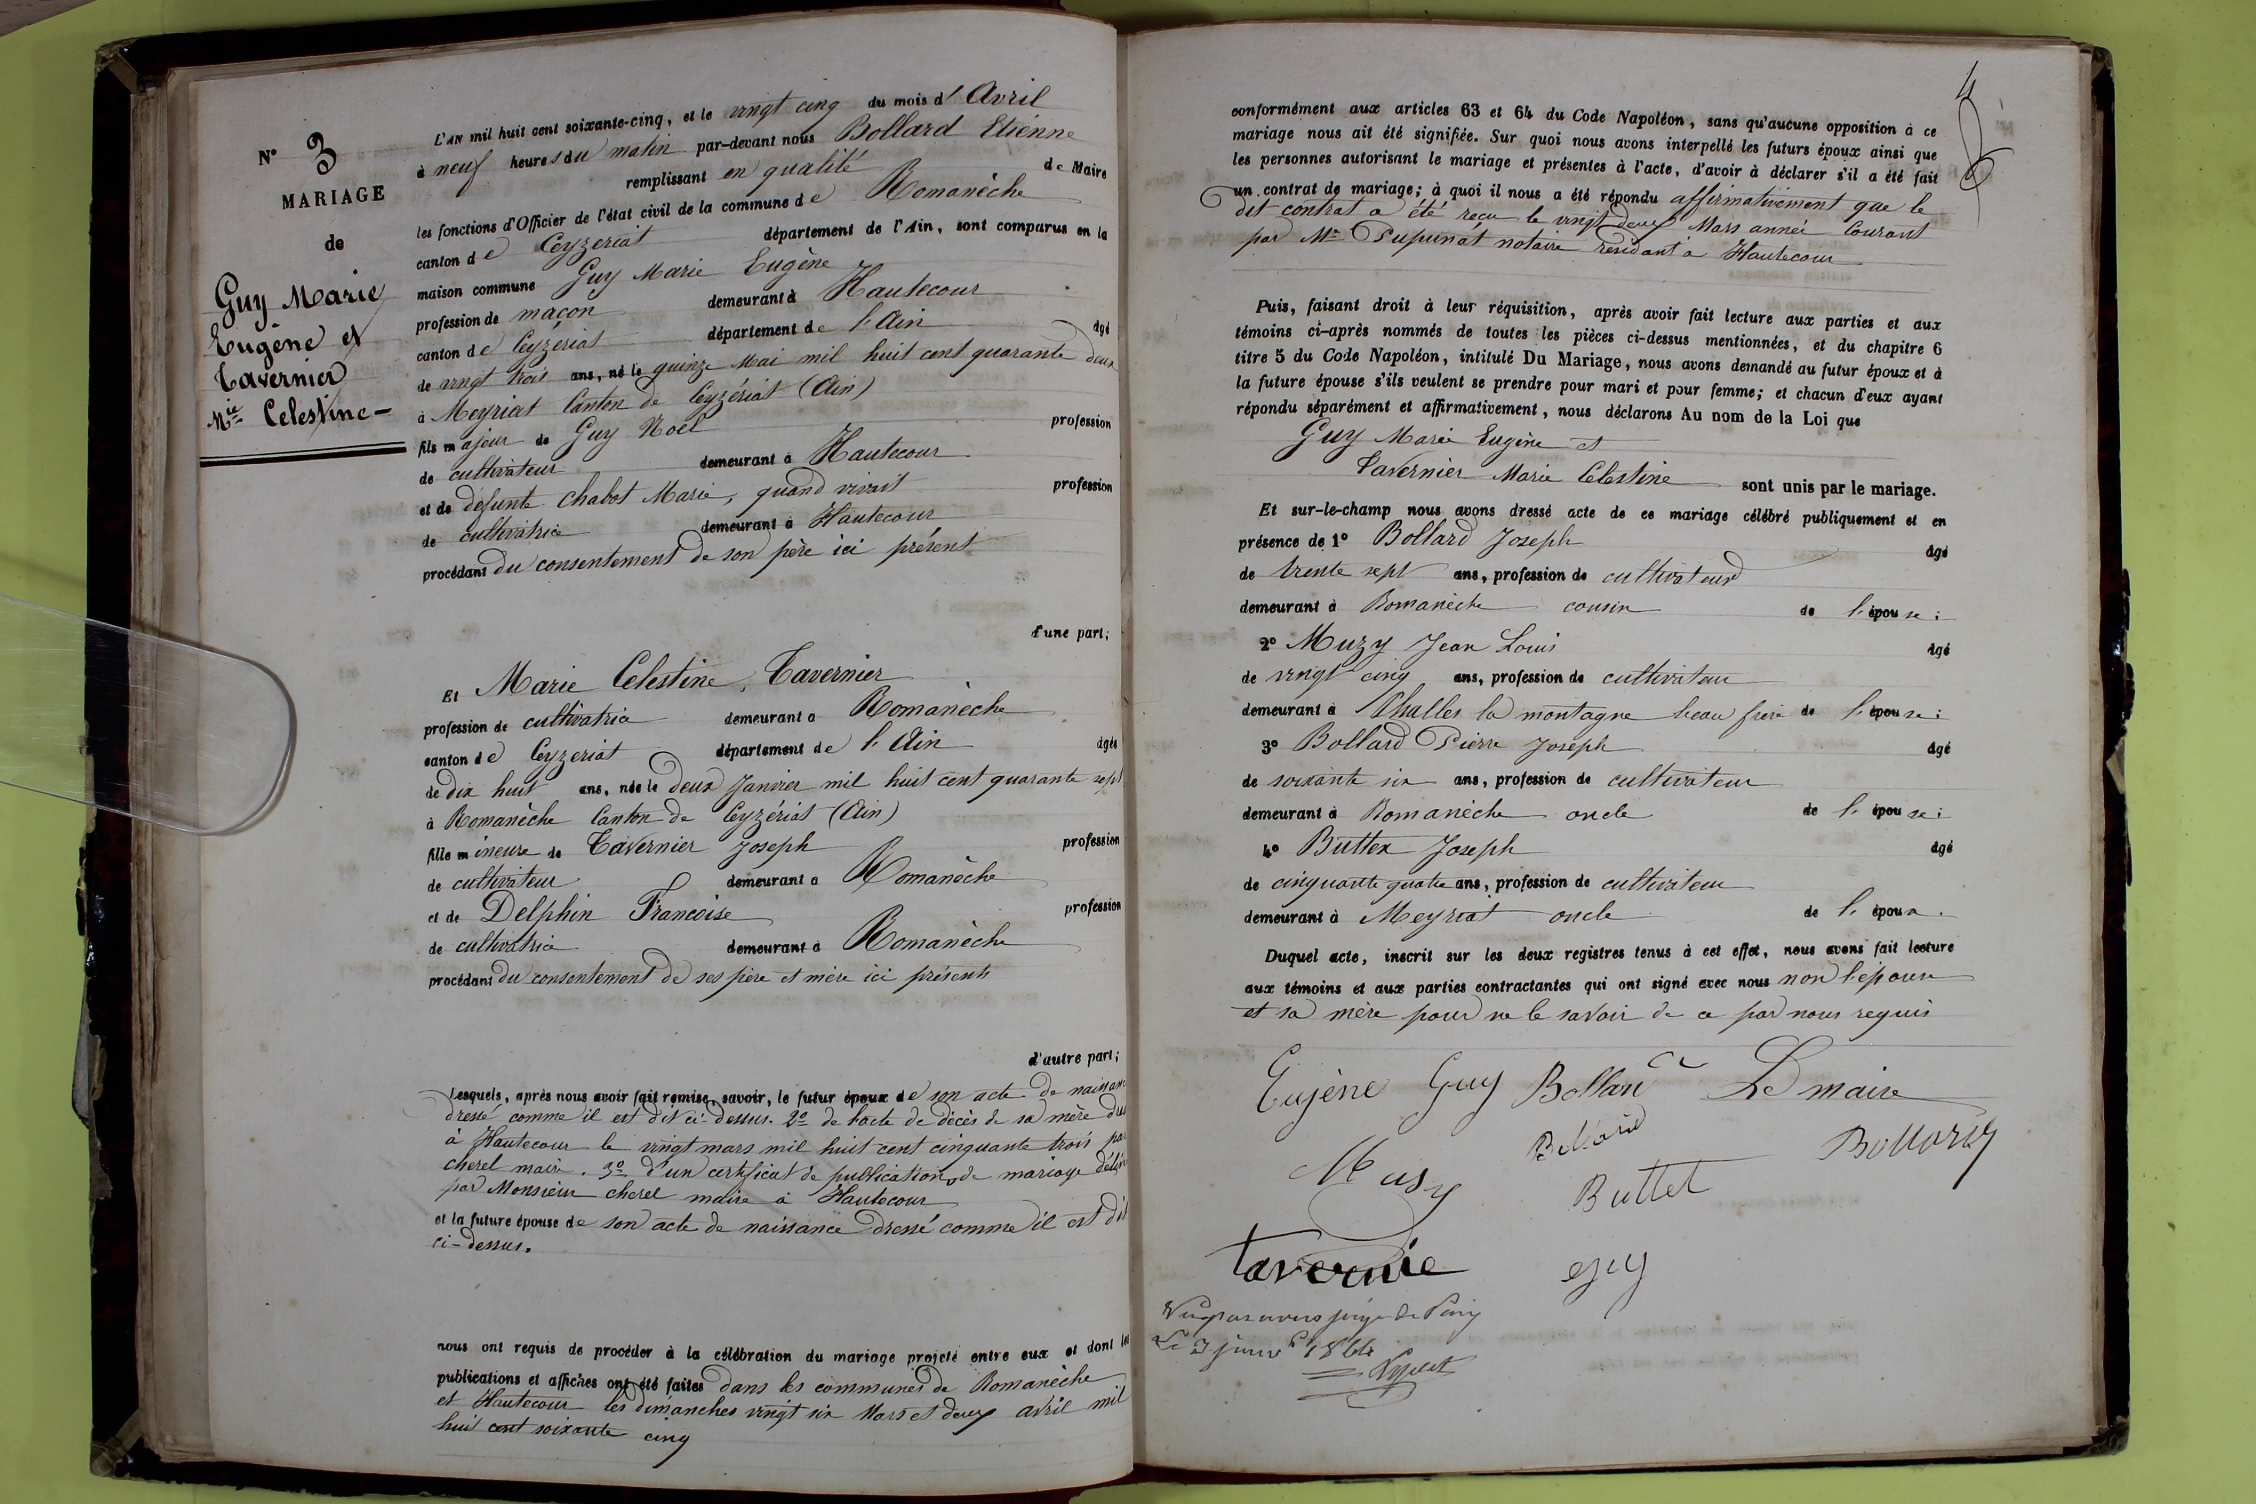 N° 3
MARIAGE
de
Guy Marie
Eugène et
Tavernier
Mie Celestine
L'AN mil huit cent soixante-cinq, et le vingt cinq du mois d'Avril
à neuf heures du matin par-devant nous Bollard Etienne
remplissant en qualité de Maire
les fonctions d'Officier de l'état civil de la commune de Romanèche
canton de Ceyzeriat département de l'Ain, sont comparus en la
maison commune Guy Marie Eugène
profession de maçon demeurant à Hautecour
canton de Ceyzériat département de l'Ain âgé
de vingt trois ans, né le quinze Mai mil huit cent quarante deux
à Meyriat Canton de Ceyzériat (Ain)
fils majeur de Guy Noël profession
de cultivateur demeurant à Hautecour
et de défunte Chabot Marie, quand vivait profession
de cultivatrice demeurant à Hautecour
procédant du consentement de son père ici présent
d'une part;
Et Marie Celestine Tavernier
profession de cultivatrice demeurant à Romanèche
canton de Ceyzeriat département de l'Ain âgée
de dix huit ans, née le deux Janvier mil huit cent quarante sept
à Romanèche Canton de Ceyzériat (Ain)
fille mineure de Tavernier Joseph profession
de cultivateur demeurant à Romanèche
et de Delphin Francoise profession
de cultivatrice demeurant à Romanèche
procédant du consentement de ses père et mère ici présents
d'autre part;
Lesquels, après nous avoir fait remise, savoir, le futur époux de son acte de naissance
dressé comme il est dit ci-dessus. 2° de l'acte de décès de sa mère
à Hautecour le vingt mars mil huit cent cinquante trois par
cherel maire. 3° d'un certificat de publication de mariage
par Monsieur cherel maire à Hautecour
et la future épouse de son acte de naissance dressé comme il est dit
ci-dessus.
nous ont requis de procéder à la célébration du mariage projeté entre eux et dont les
publications et affiches ont été faites dans les communes de Romanèche
et Hautecour les dimanches vingt six Mars et deux avril mil
huit cent soixante cinq
conformément aux articles 63 et 64 du Code Napoléon, sans qu'aucune opposition à ce
mariage nous ait été signifiée. Sur quoi nous avons interpellé les futurs époux ainsi que
les personnes autorisant le mariage et présentes à l'acte, d'avoir à déclarer s'il a été fait
un contrat de mariage; à quoi il nous a été répondu affirmativement que le
dit contrat a été reçu le vingt deux Mars année Courant
par Me Pupunat notaire résidant à Hautecour
Puis, faisant droit à leur réquisition, après avoir fait lecture aux parties et aux
témoins ci-après nommés de toutes les pièces ci-dessus mentionnées, et du chapitre 6
titre 5 du Code Napoléon, intitulé Du Mariage, nous avons demandé au futur époux et à
la future épouse s'ils veulent se prendre pour mari et pour femme; et chacun d'eux ayant
répondu séparément et affirmativement, nous déclarons Au nom de la Loi que
Guy Marie Eugène et
Tavernier Marie Celestine sont unis par le mariage.
Et sur-le-champ nous avons dressé acte de ce mariage célébré publiquement et en
présence de 1° Bollard Joseph âgé
de trente sept ans, profession de cultivateur
demeurant à Romanèche cousin de l'épouse;
2° Muzy Jean Louis âgé
de vingt cinq ans, profession de cultivateur
demeurant à Challes la montagne beau frère de l'épouse;
3° Bollard Pierre Joseph âgé
de soixante six ans, profession de cultivateur
demeurant à Romanèche oncle de l'épouse;
4° Buttex Joseph âgé
de cinquante quatre ans, profession de cultivateur
demeurant à Meyriat oncle de l'époux.
Duquel acte, inscrit sur les deux registres tenus à cet effet, nous avons fait lecture
aux témoins et aux parties contractantes qui ont signé avec nous non l'épouse
et sa mère pour ne le savoir de ce par nous requis
Eugène Guy Bollard Le maire
Musy Bollard Bollard
Buttet
tavernie guy